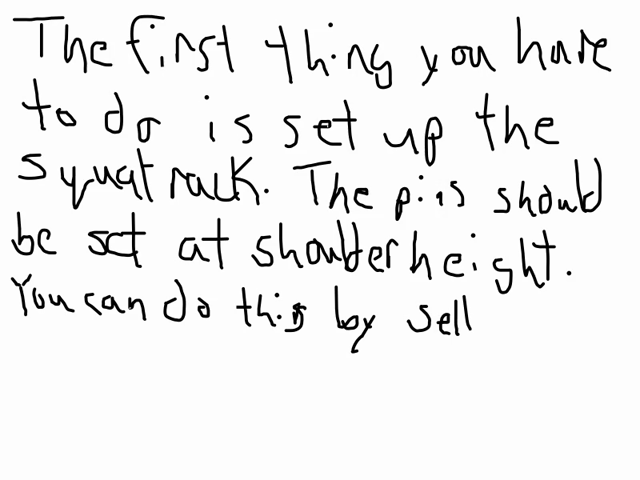 The first thing you have
to do is set up the
squat rack. The pins should
be set at shoulder height.
You can do this by sell